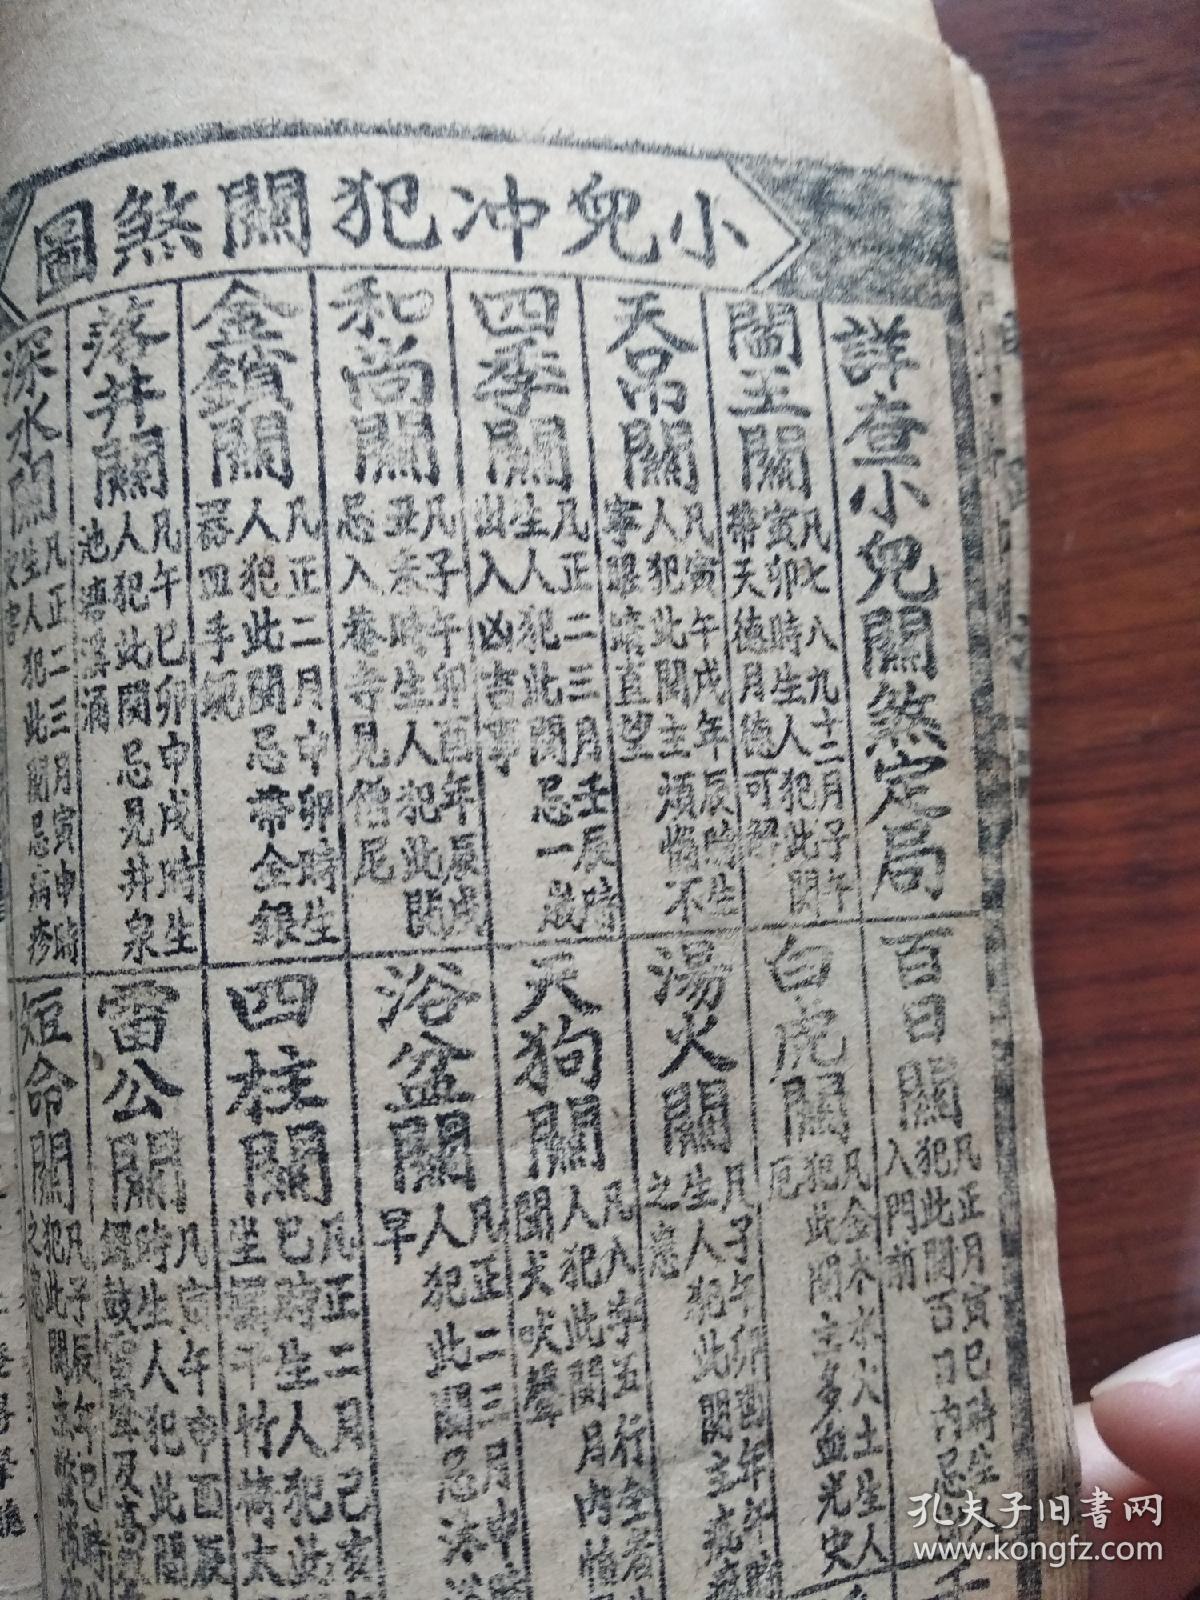 小兒冲犯關煞圖
詳查小兒關煞定局
閻王關
凡七八九十二月子午
寅卯時生人犯此関
帶天德月德可解
天吊關
凡寅午戌年辰時生
人犯此関主煩惱不
寧眼睛直望
四季關
凡正二三月壬辰時
生人犯此関忌一歲
出入凶吉事
和尚關
凡子午卯酉年辰戌
丑未時生人犯此関
忌入菴寺見僧尼
金鎖關
凡正二月申卯時生
人犯此関忌帶金銀
器皿手
落井關
凡午巳卯申戌時生
人犯此関忌見井泉
池
深水關
凡正二三月寅申時
生人犯此関忌
百日關
凡正月寅巳時生
犯此関百日內忌
入門前
白虎關
凡金木水火土生人
犯此関主多血光灾
厄
湯火關
凡子午卯酉年午時
生人犯此関主
之患
天狗關
凡入學五行全者
人犯此関月內怕
聞犬吠聲
浴盆關
凡正二三月申
人犯此關忌沐浴
早
四柱關
凡正二月己亥
巳時生人犯此
坐竹椅太
雷公關
凡寅午申酉辰
時生人犯此関
鑼鼓雷聲及高
短命關
凡子辰年巳時
犯此関主
之
孔夫子旧書网
www.kongfz.com